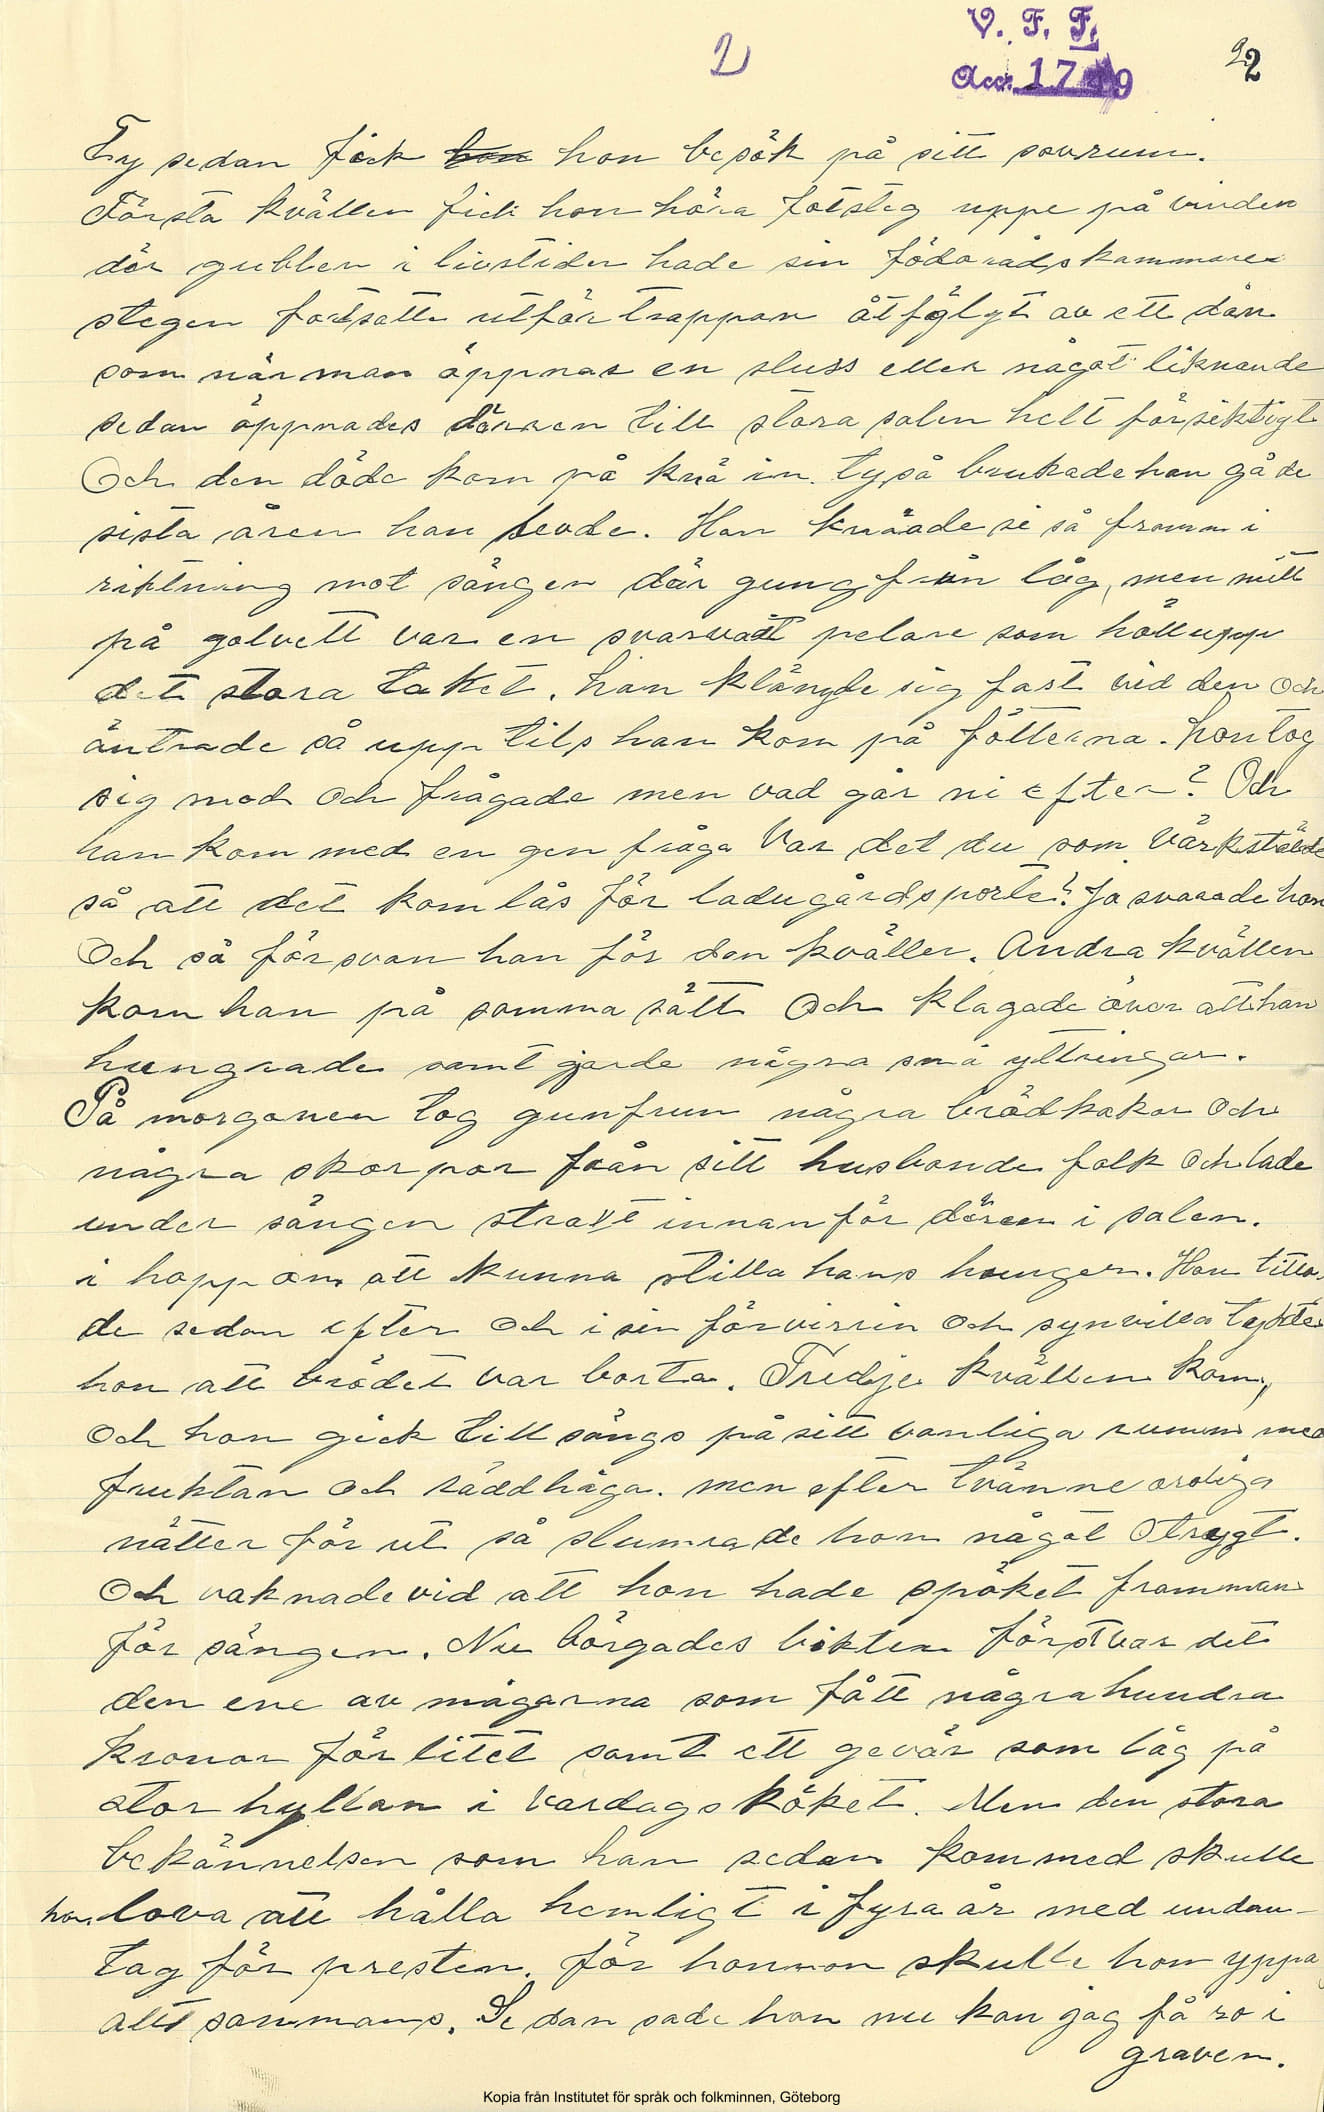 V. F. F.
2
22
Acc. 1749
Ty sedan fick hon hon besök på sitt sovrum.
Första kvällen fick hon höra fotsteg uppe på vinden
där gubben i livstiden hade sin födorådskammare
stegen fortsatte utför trappan åtföljt av ett dån
som när man öppnar en sluss eller något liknande
sedan öppnades dörren till stora salen helt försiktigt
Och den döde kom på knä in. ty så brukade han gå de
sista åren han levde. Han knäade si så framm i
riktning mot sängen där gungfrun låg, men mitt
på golvett var en svarvatt pelare som höll upp
det stora taket. han klängde sig fast vid den och
äntrade så upp tils han kom på fötterna. hon tog
sig mod och frågade men vad går ni efter? Och
han kom med en gen fråga Var det du som värkstälde
så att det kom lås för ladugårdsporte? Ja svarade hon
Och så försvan han för den kvällen. Andra kvällen
kom han på samma sätt Och klagade över att han
hungrade samt gjorde några små yttringar.
På morgonen tog gunfrun några brödkakor och
några skorpor från sitt husbonde folk och lade
under sängen straxt innanför dören i salen.
i hopp om att kunna stilla hans hunger. Hon titta-
de sedan efter och i sin förvirrin och synvilla tykte
hon att brödet var borta. Tredje kvällen kom,
och hon gick till sängs på sitt vanliga rumm med
fruktan och räddhåga. men efter tvänne oroliga
nätter för ut så slumrade hon något Otrygt.
Och vaknade vid att hon hade spöket framman
för sängen. Nu börgades bikten först var det
den ene av mågarna som fått några hundra
kronor för litet samt ett gevär som låg på
stor hyllan i vardags köket. Men den stora
bekännelsen som han sedan kom med skulle
hon lova att hålla hemligt i fyra år med undan-
tag för presten. för honnom skulle hon yppa
allt sammans. Sedan sade han nu kan jag få ro i
graven.
Kopia från Institutet för språk och folkminnen, Göteborg